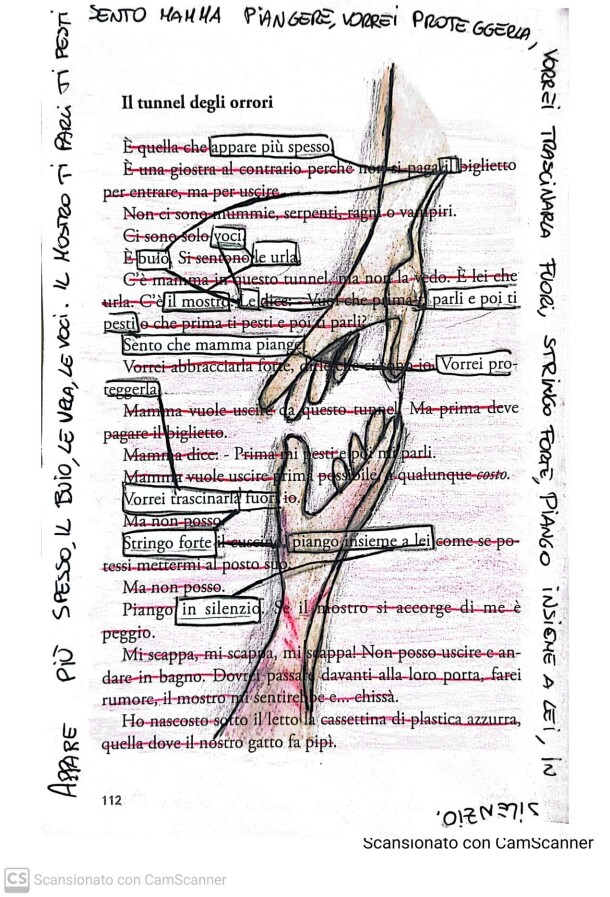 SENTO MAMMA PIANGERE, VORREI PROTEGGERLA,
VORREI TRASCINARLA FUORI, STRINGO FORTE, PIANGO INSIEME A LEI, IN
SILENZIO.
APPARE PIÙ SPESSO, IL BUIO, LE URLA, LE VOCI. IL MOSTRO TI PARLI TI PESTI
Il tunnel degli orrori
È quella che appare più spesso.
È una giostra al contrario perché non si paga il biglietto
per entrare, ma per uscire.
Non ci sono mummie, serpenti, ragni o vampiri.
Ci sono solo voci.
È buio. Si sentono le urla.
C'è mamma in questo tunnel, ma non la vedo. È lei che
urla. C'è il mostro. Le dice: - Vuoi che prima ti parli e poi ti
pesti o che prima ti pesti e poi ti parli?
Sento che mamma piange.
Vorrei abbracciarla forte, dirle che ci sono io. Vorrei pro-
teggerla.
Mamma vuole uscire da questo tunnel. Ma prima deve
pagare il biglietto.
Mamma dice: - Prima mi pesti e poi mi parli.
Mamma vuole uscire prima possibile, a qualunque costo.
Vorrei trascinarla fuori io.
Ma non posso.
Stringo forte il cuscino, piango insieme a lei come se po-
tessi mettermi al posto suo.
Ma non posso.
Piango in silenzio. Se il mostro si accorge di me è
peggio.
Mi scappa, mi scappa, mi scappa! Non posso uscire e an-
dare in bagno. Dovrei passare davanti alla loro porta, farei
rumore, il mostro mi sentirebbe e... chissà.
Ho nascosto sotto il letto la cassettina di plastica azzurra,
quella dove il nostro gatto fa pipì.
112
Scansionato con CamScanner
CS Scansionato con CamScanner